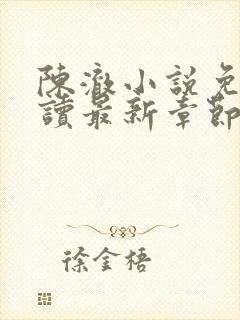 陳澈小說免
讀最新章節
徐金梧